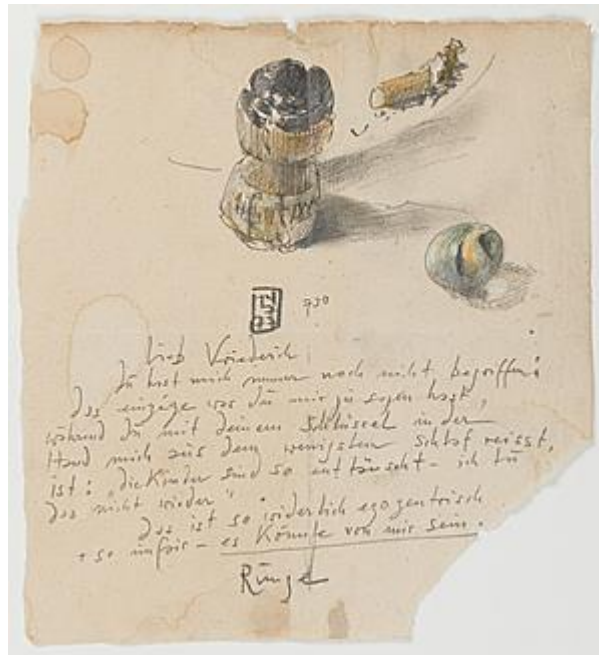 730
Lieb Vriederich
Dü hast mich immer noch nicht begriffen:
Das einzige was Dü mir zu sagen hast,
während Dü mit deinem Schlüssel in der
Hand mich aus dem wenigsten Schlaf reisst,
ist: „die Kinder sind so enttäuscht – ich tü
das nicht wieder“.
Das ist so widerlich egozentrisch
+ so ünfair – es könnte von mir sein.
Rünge